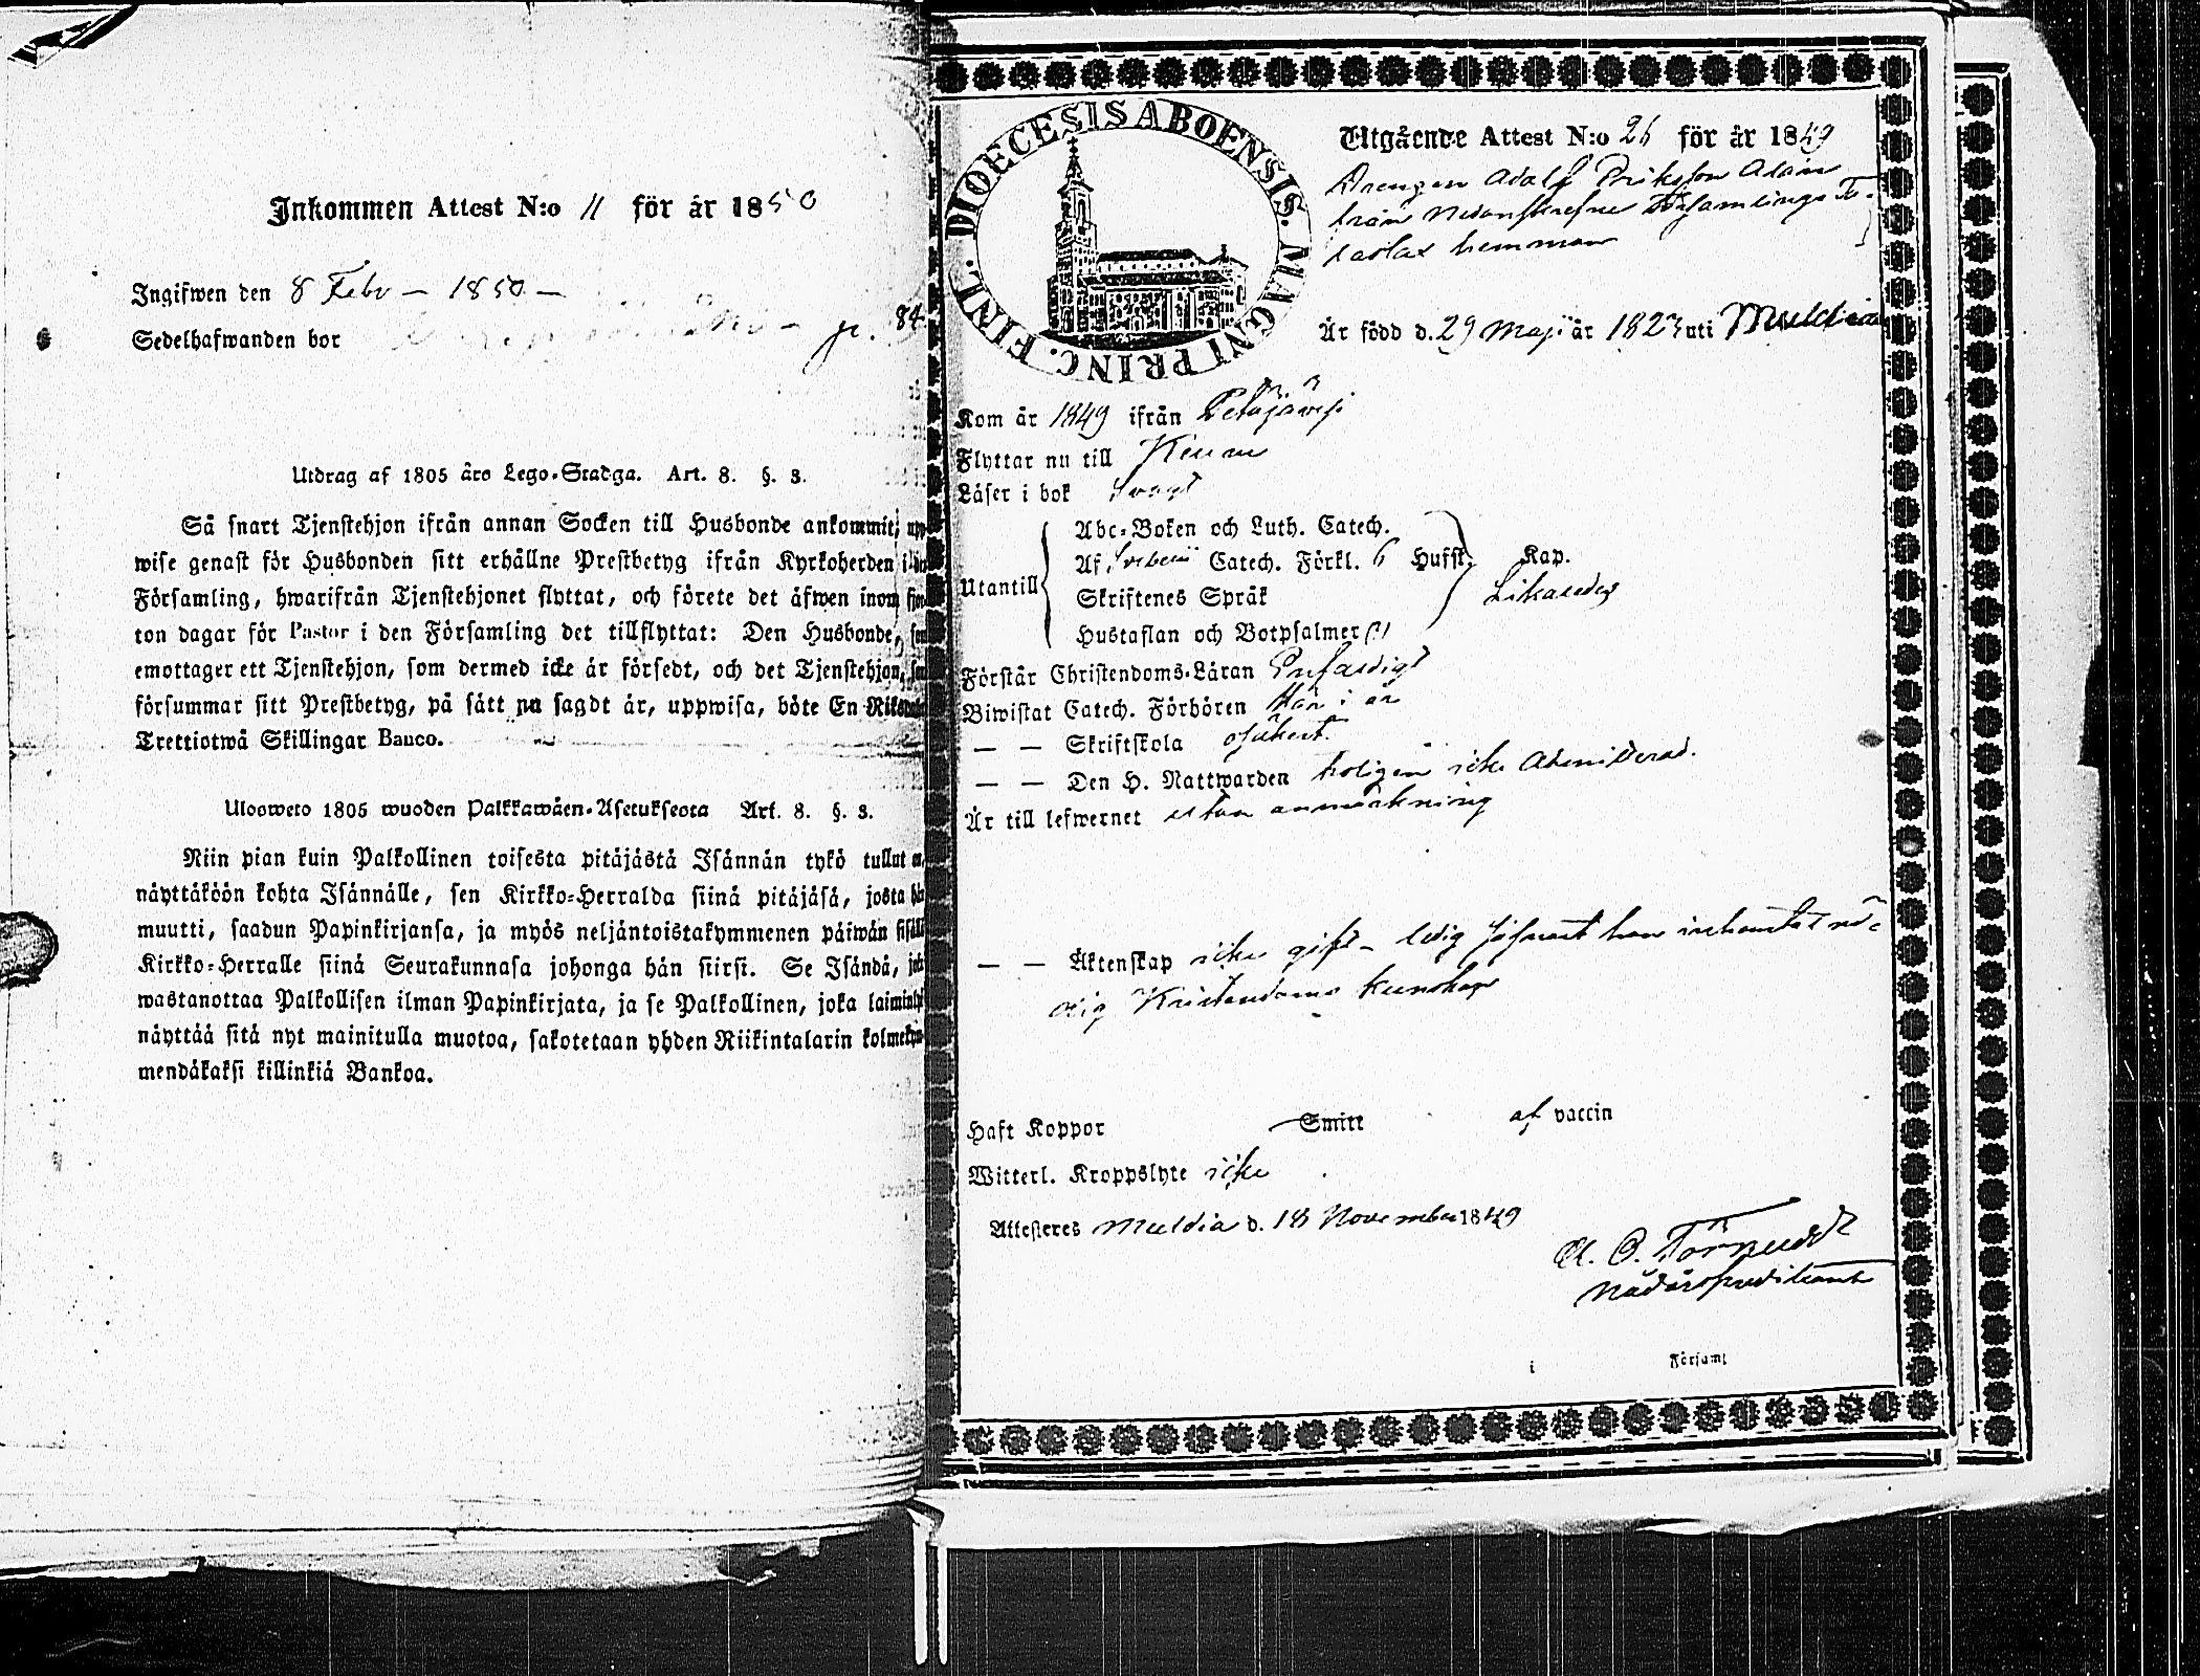 Inkommen Attest N:o 11 för år 1850
Ingifwen den 8 Febr – 1850 –
Sedelhafwanden bor p. 84
Utdrag af 1805 års Lego-Stadga. Art. 8. §. 3.
Så snart Tjenstehjon ifrån annan Socken till Husbonde ankommit, upp-
wise genast för Husbonden sitt erhållne Prestbetyg ifrån Kyrkoherden i
Församling, hwarifrån Tjenstehjonet flyttat, och förete det äfwen inom fjor-
ton dagar för Pastor i den Församling det tillflyttat: Den Husbonde, som
emottager ett Tjenstehjon, som dermed icke är försedt, och det Tjenstehjon, som
försummar sitt Prestbetyg, på sätt nu sagdt är, uppwisa, böte En Riksdaler
Trettiotwå Skillingar Banco.
Ulosweto 1805 wuoden Palkkawäen-Asetuksesta Art. 8. §. 3.
Niin pian kuin Palkollinen toisesta pitäjästä Isännän tykö tullut
näyttäköön kohta Isännälle, sen Kirkko-Herralda siinä pitäjäsä, josta hän
muutti, saadun Papinkirjansa, ja myös neljäntoistakymmenen päiwän sisällä
Kirkko-Herralle siinä Seurakunnasa johonga hän siirsi. Se Isändä, joka
wastanottaa Palkollisen ilman Papinkirjata, ja se Palkollinen, joka laiminlyö
näyttää sitä nyt mainitulla muotoa, sakotetaan yhden Riikintalarin kolmekym-
mendäkaksi killinkiä Bankoa.
DIOECESIS ABOENSIS. MAGNI PRINC. FINL.
Utgående Attest N:o 26 för år 1849
Drengen Adolf Eriksson Alain
från nedanskrefne Församlings
hemman
År född d. 29 Maji år 1823 uti Muldia
Kom år 1849 ifrån Petäjävesi
Flyttar nu till Keuru
Läser i bok svagt
Utantill
Abc-Boken och Luth. Catech.
Af Svebelii Catech. Förkl. 6 Hufst. Kap.
Skriftenes Språk Likaledes
Hustaflan och Botpsalmer
Förstår Christendoms-Läran Enfaldigt
Biwistat Catech. Förhören här i år
— — Skriftskola osäkert.
— — Den H. Nattwarden troligen icke Admitterad.
År till lefwernet utan anmärkning
— — Äktenskap icke gift – ledig såframt han inhemtat nö-
dig Kristendoms kunskap
Haft Koppor Smitt af vaccin
Witterl. Kroppslyte icke
Attesteres Muldia d. 18 November 1849
A. O. Törnudd
Nådårspredikant
i Församl